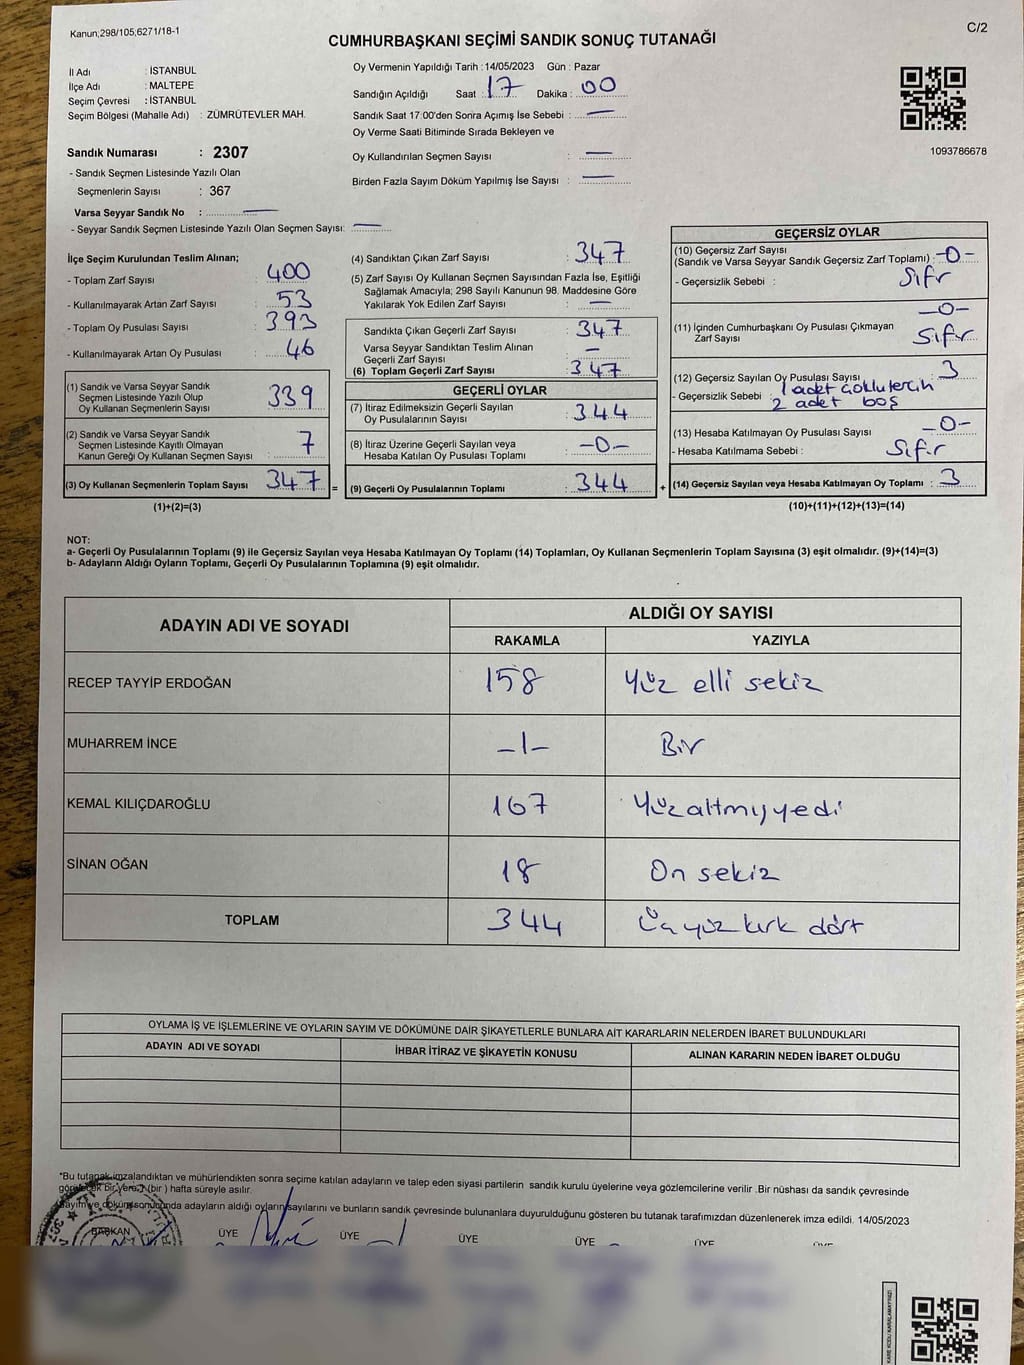 Kanun;298/105;6271/18-1
C/2
CUMHURBAŞKANI SEÇİMİ SANDIK SONUÇ TUTANAĞI
İl Adı : İSTANBUL
İlçe Adı : MALTEPE
Seçim Çevresi : İSTANBUL
Seçim Bölgesi (Mahalle Adı) : ZÜMRÜTEVLER MAH.
Sandık Numarası : 2307
- Sandık Seçmen Listesinde Yazılı Olan
Seçmenlerin Sayısı : 367
Varsa Seyyar Sandık No : —
- Seyyar Sandık Seçmen Listesinde Yazılı Olan Seçmen Sayısı: —
Oy Vermenin Yapıldığı Tarih : 14/05/2023 Gün : Pazar
Sandığın Açıldığı Saat : 17 Dakika : 00
Sandık Saat 17:00'den Sonra Açımış İse Sebebi : —
Oy Verme Saati Bitiminde Sırada Bekleyen ve
Oy Kullandırılan Seçmen Sayısı : —
Birden Fazla Sayım Döküm Yapılmış İse Sayısı : —
1093786678
İlçe Seçim Kurulundan Teslim Alınan;
- Toplam Zarf Sayısı : 400
- Kullanılmayarak Artan Zarf Sayısı : 53
- Toplam Oy Pusulası Sayısı : 393
- Kullanılmayarak Artan Oy Pusulası : 46
(1) Sandık ve Varsa Seyyar Sandık
Seçmen Listesinde Yazılı Olup
Oy Kullanan Seçmenlerin Sayısı : 339
(2) Sandık ve Varsa Seyyar Sandık
Seçmen Listesinde Kayıtlı Olmayan
Kanun Gereği Oy Kullanan Seçmen Sayısı : 7
(3) Oy Kullanan Seçmenlerin Toplam Sayısı : 347 =
(1)+(2)=(3)
(4) Sandıktan Çıkan Zarf Sayısı : 347
(5) Zarf Sayısı Oy Kullanan Seçmen Sayısından Fazla İse, Eşitliği
Sağlamak Amacıyla; 298 Sayılı Kanunun 98. Maddesine Göre
Yakılarak Yok Edilen Zarf Sayısı : —
Sandıkta Çıkan Geçerli Zarf Sayısı : 347
Varsa Seyyar Sandıktan Teslim Alınan
Geçerli Zarf Sayısı : —
(6) Toplam Geçerli Zarf Sayısı : 347
GEÇERLİ OYLAR
(7) İtiraz Edilmeksizin Geçerli Sayılan
Oy Pusulasının Sayısı : 344
(8) İtiraz Üzerine Geçerli Sayılan veya
Hesaba Katılan Oy Pusulası Toplamı : -0-
(9) Geçerli Oy Pusulalarının Toplamı : 344 +
GEÇERSİZ OYLAR
(10) Geçersiz Zarf Sayısı
(Sandık ve Varsa Seyyar Sandık Geçersiz Zarf Toplamı) : -0-
- Geçersizlik Sebebi : Sıfır
-0-
(11) İçinden Cumhurbaşkanı Oy Pusulası Çıkmayan
Zarf Sayısı : Sıfır
(12) Geçersiz Sayılan Oy Pusulası Sayısı : 3
- Geçersizlik Sebebi : 1 adet çoklu tercih
2 adet boş
(13) Hesaba Katılmayan Oy Pusulası Sayısı : -0-
- Hesaba Katılmama Sebebi : Sıfır
(14) Geçersiz Sayılan veya Hesaba Katılmayan Oy Toplamı : 3
(10)+(11)+(12)+(13)=(14)
NOT:
a- Geçerli Oy Pusulalarının Toplamı (9) ile Geçersiz Sayılan veya Hesaba Katılmayan Oy Toplamı (14) Toplamları, Oy Kullanan Seçmenlerin Toplam Sayısına (3) eşit olmalıdır. (9)+(14)=(3)
b- Adayların Aldığı Oyların Toplamı, Geçerli Oy Pusulalarının Toplamına (9) eşit olmalıdır.
ADAYIN ADI VE SOYADI
ALDIĞI OY SAYISI
RAKAMLA YAZIYLA
RECEP TAYYİP ERDOĞAN 158 Yüz elli sekiz
MUHARREM İNCE -1- Bir
KEMAL KILIÇDAROĞLU 167 Yüzaltmışyedi
SİNAN OĞAN 18 On sekiz
TOPLAM 344 Üçyüz kırk dört
OYLAMA İŞ VE İŞLEMLERİNE VE OYLARIN SAYIM VE DÖKÜMÜNE DAİR ŞİKAYETLERLE BUNLARA AİT KARARLARIN NELERDEN İBARET BULUNDUKLARI
ADAYIN ADI VE SOYADI İHBAR İTİRAZ VE ŞİKAYETİN KONUSU ALINAN KARARIN NEDEN İBARET OLDUĞU
*Bu tutanak imzalandıktan ve mühürlendikten sonra seçime katılan adayların ve talep eden siyasi partilerin sandık kurulu üyelerine veya gözlemcilerine verilir .Bir nüshası da sandık çevresinde
bir yere 7 (bir ) hafta süreyle asılır.
adayların aldığı oyların sayılarını ve bunların sandık çevresinde bulunanlara duyurulduğunu gösteren bu tutanak tarafımızdan düzenlenerek imza edildi. 14/05/2023
BAŞKAN ÜYE ÜYE ÜYE ÜYE ÜYE ÜYE